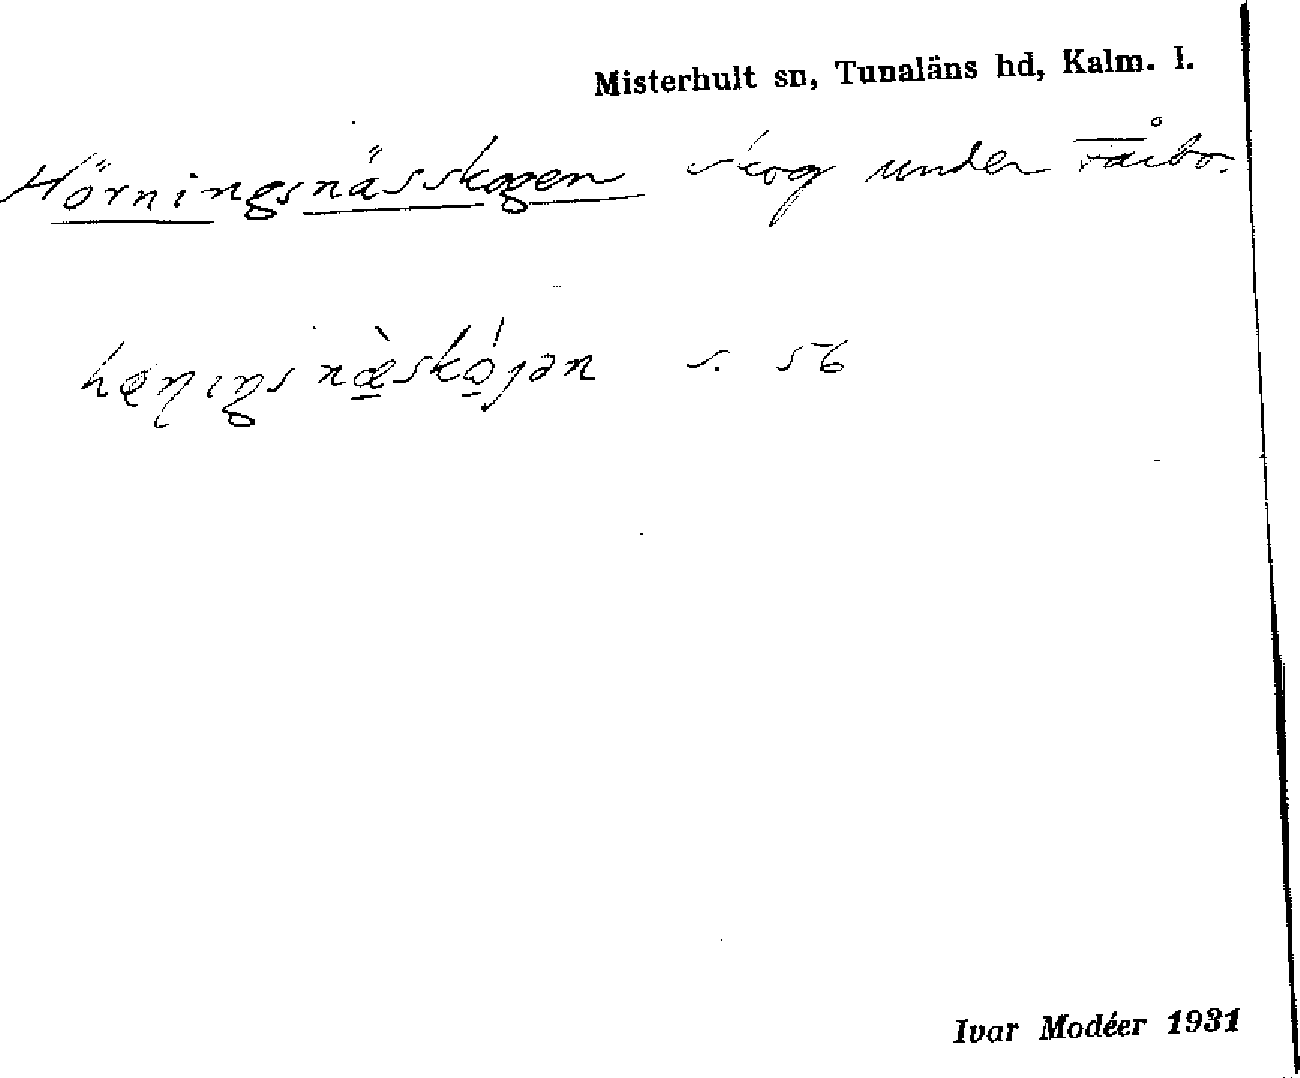 Misterhult sn, Tunaläns hd, Kalm. l.
Hörningsnässkogen skog under Fårbo.
hœɳıŋs næ̀skó̱ʃən s. 56
Ivar Modéer 1931